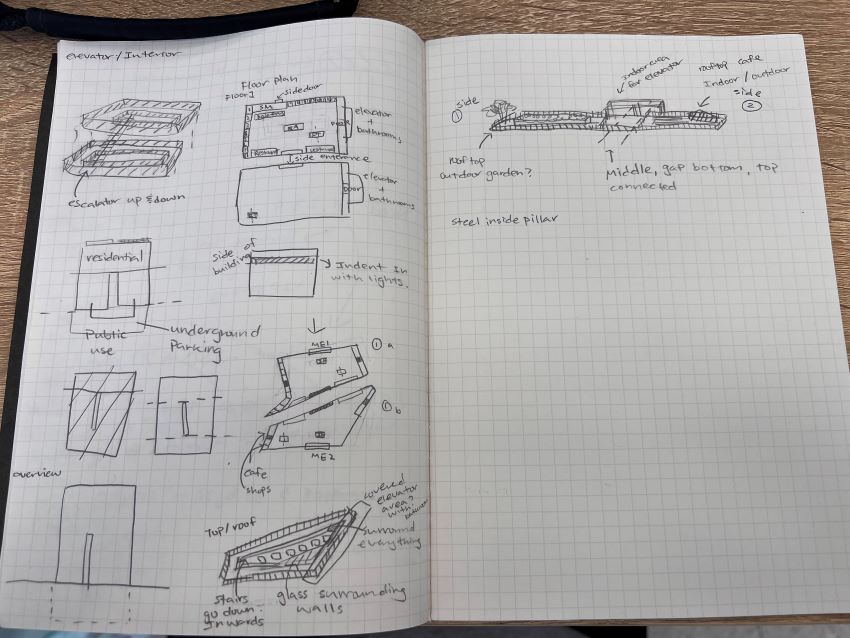 elevator/Interior
escalator up & down
residential
Public
use
underground
Parking
overview
Floor plan
Floor 1
side door
SM
elevator
+
bathrooms
side entrance
elevator
+
bathrooms
Door
side of
building
Indent In
with lights.
ME1
1 a
1 b
ME2
cafe
shops
Top/roof
covered
elevator
area?
with
surround
everything
stairs
go down
Inwards
glass surrounding
walls
side
1
rooftop
outdoor garden?
Indoor area
for elevator
rooftop cafe
Indoor/outdoor
side
2
Middle, gap bottom, top
connected
steel inside pillar